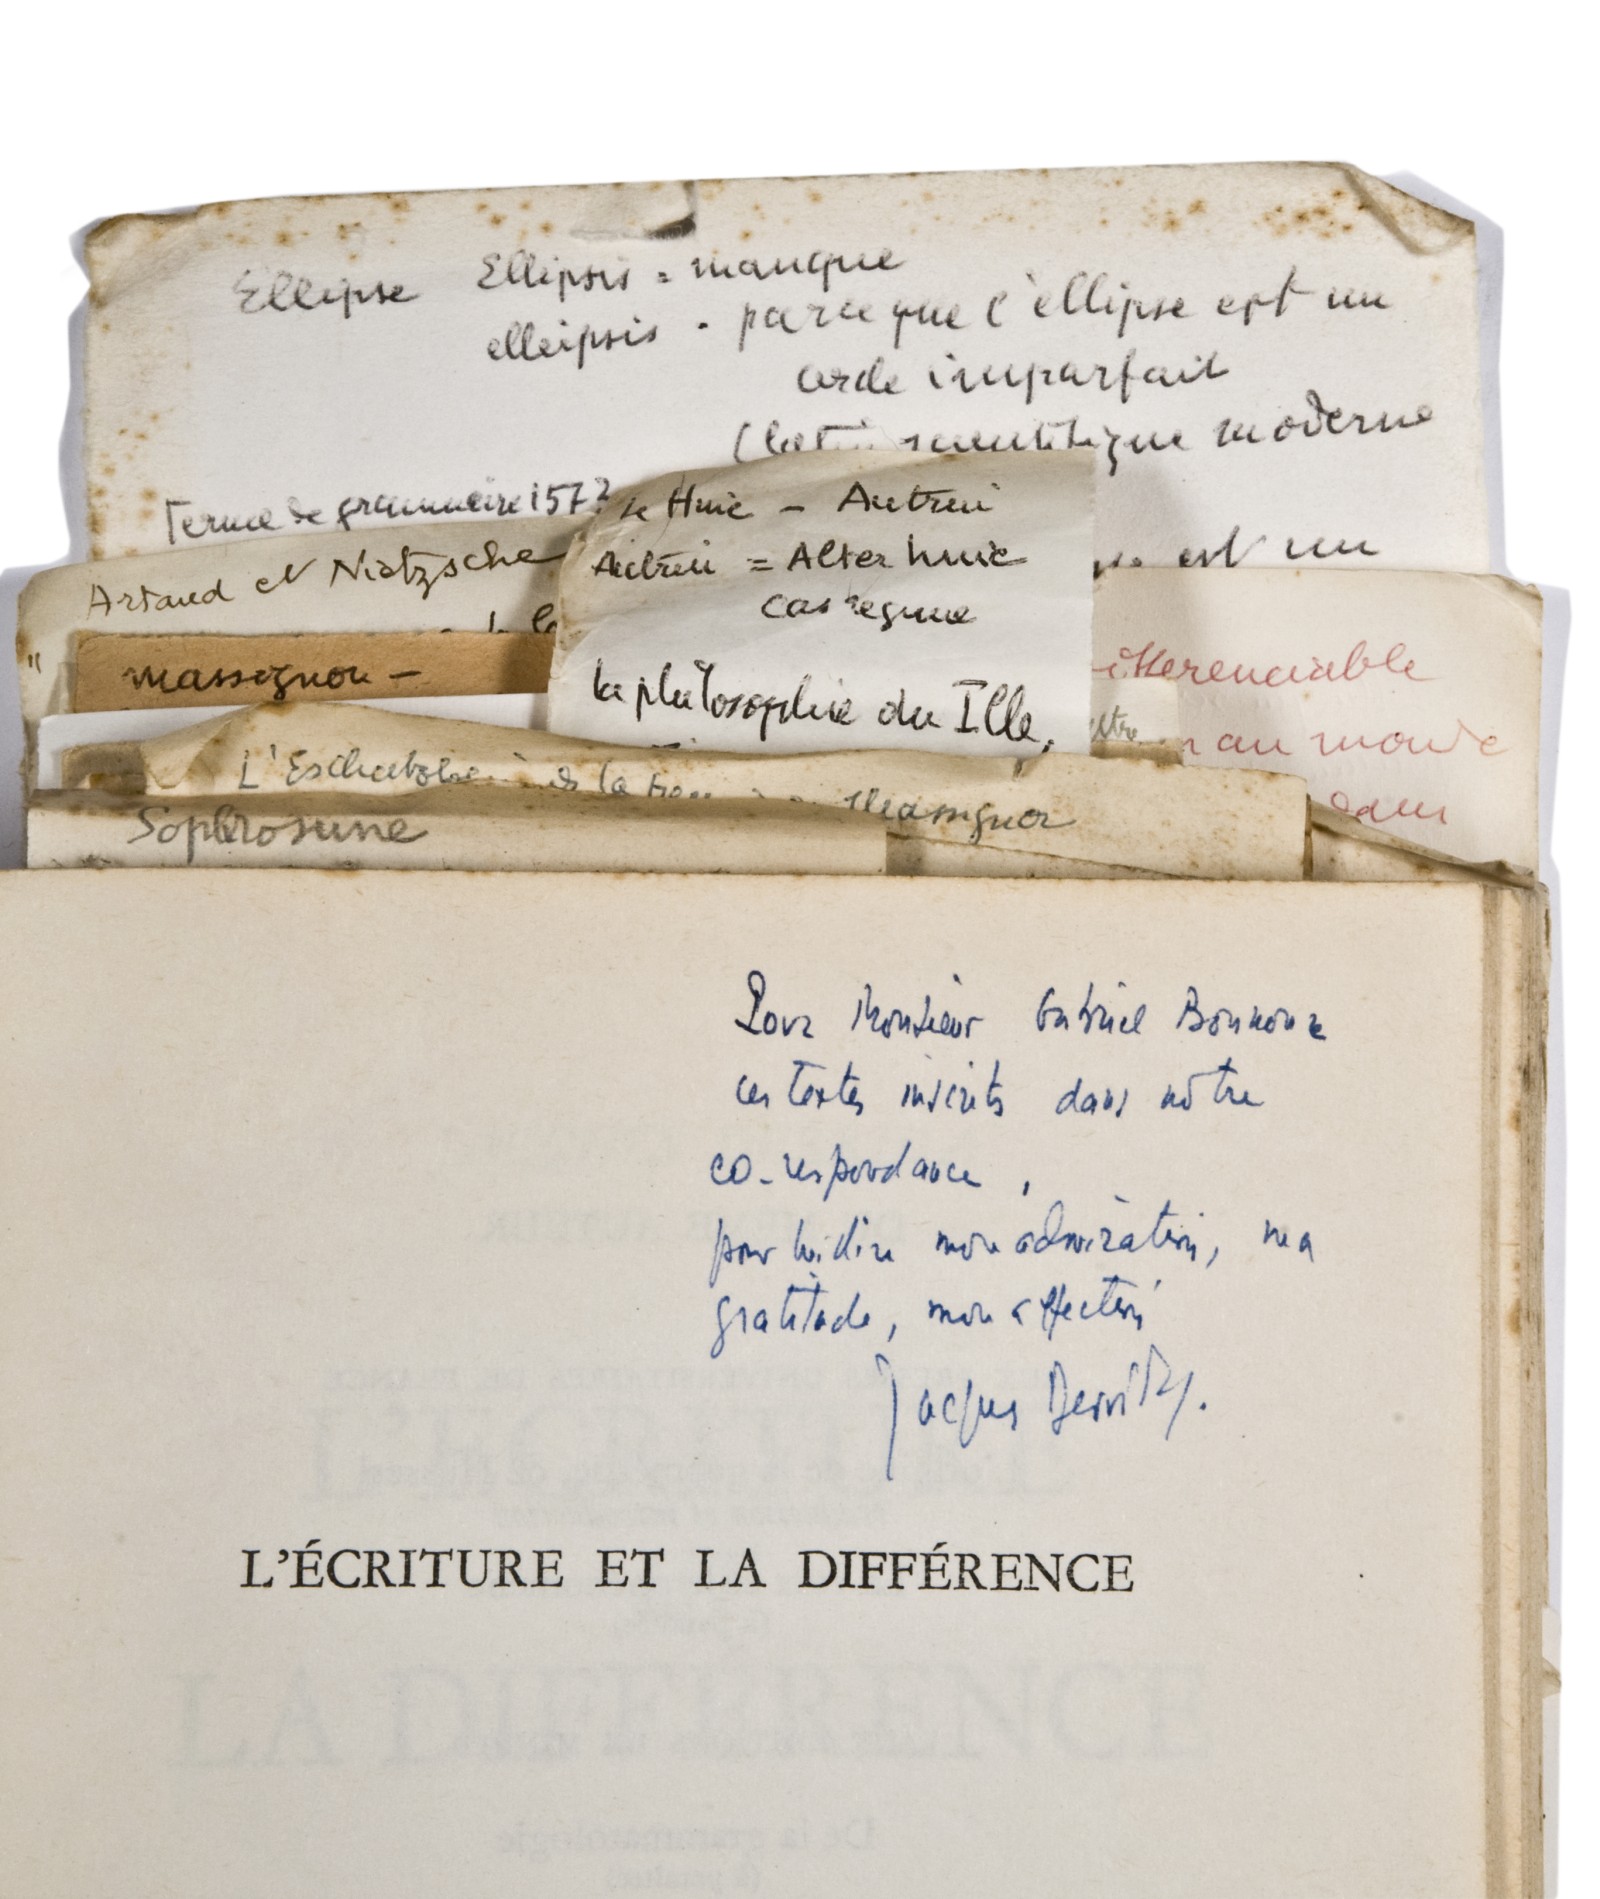 Ellipse Ellipsis = manque
elleipsis - parce que l'ellipse est un
cercle imparfait
scientifique moderne
Terme de grammaire 1573
est un
Huic - Autrui
Autrui = Alter huic
cas régime
la philosophie du Ille,
Artaud et Nietzsche
massignon -
au monde
dans
L'Eschatologie de la Massignon
Sophrosune
Pour Monsieur Gabriel Bounoure
ces textes inscrits dans notre
co-respondance,
pour lui dire mon admiration, ma
gratitude, mon affection
Jacques Derrida.
L'ÉCRITURE ET LA DIFFÉRENCE